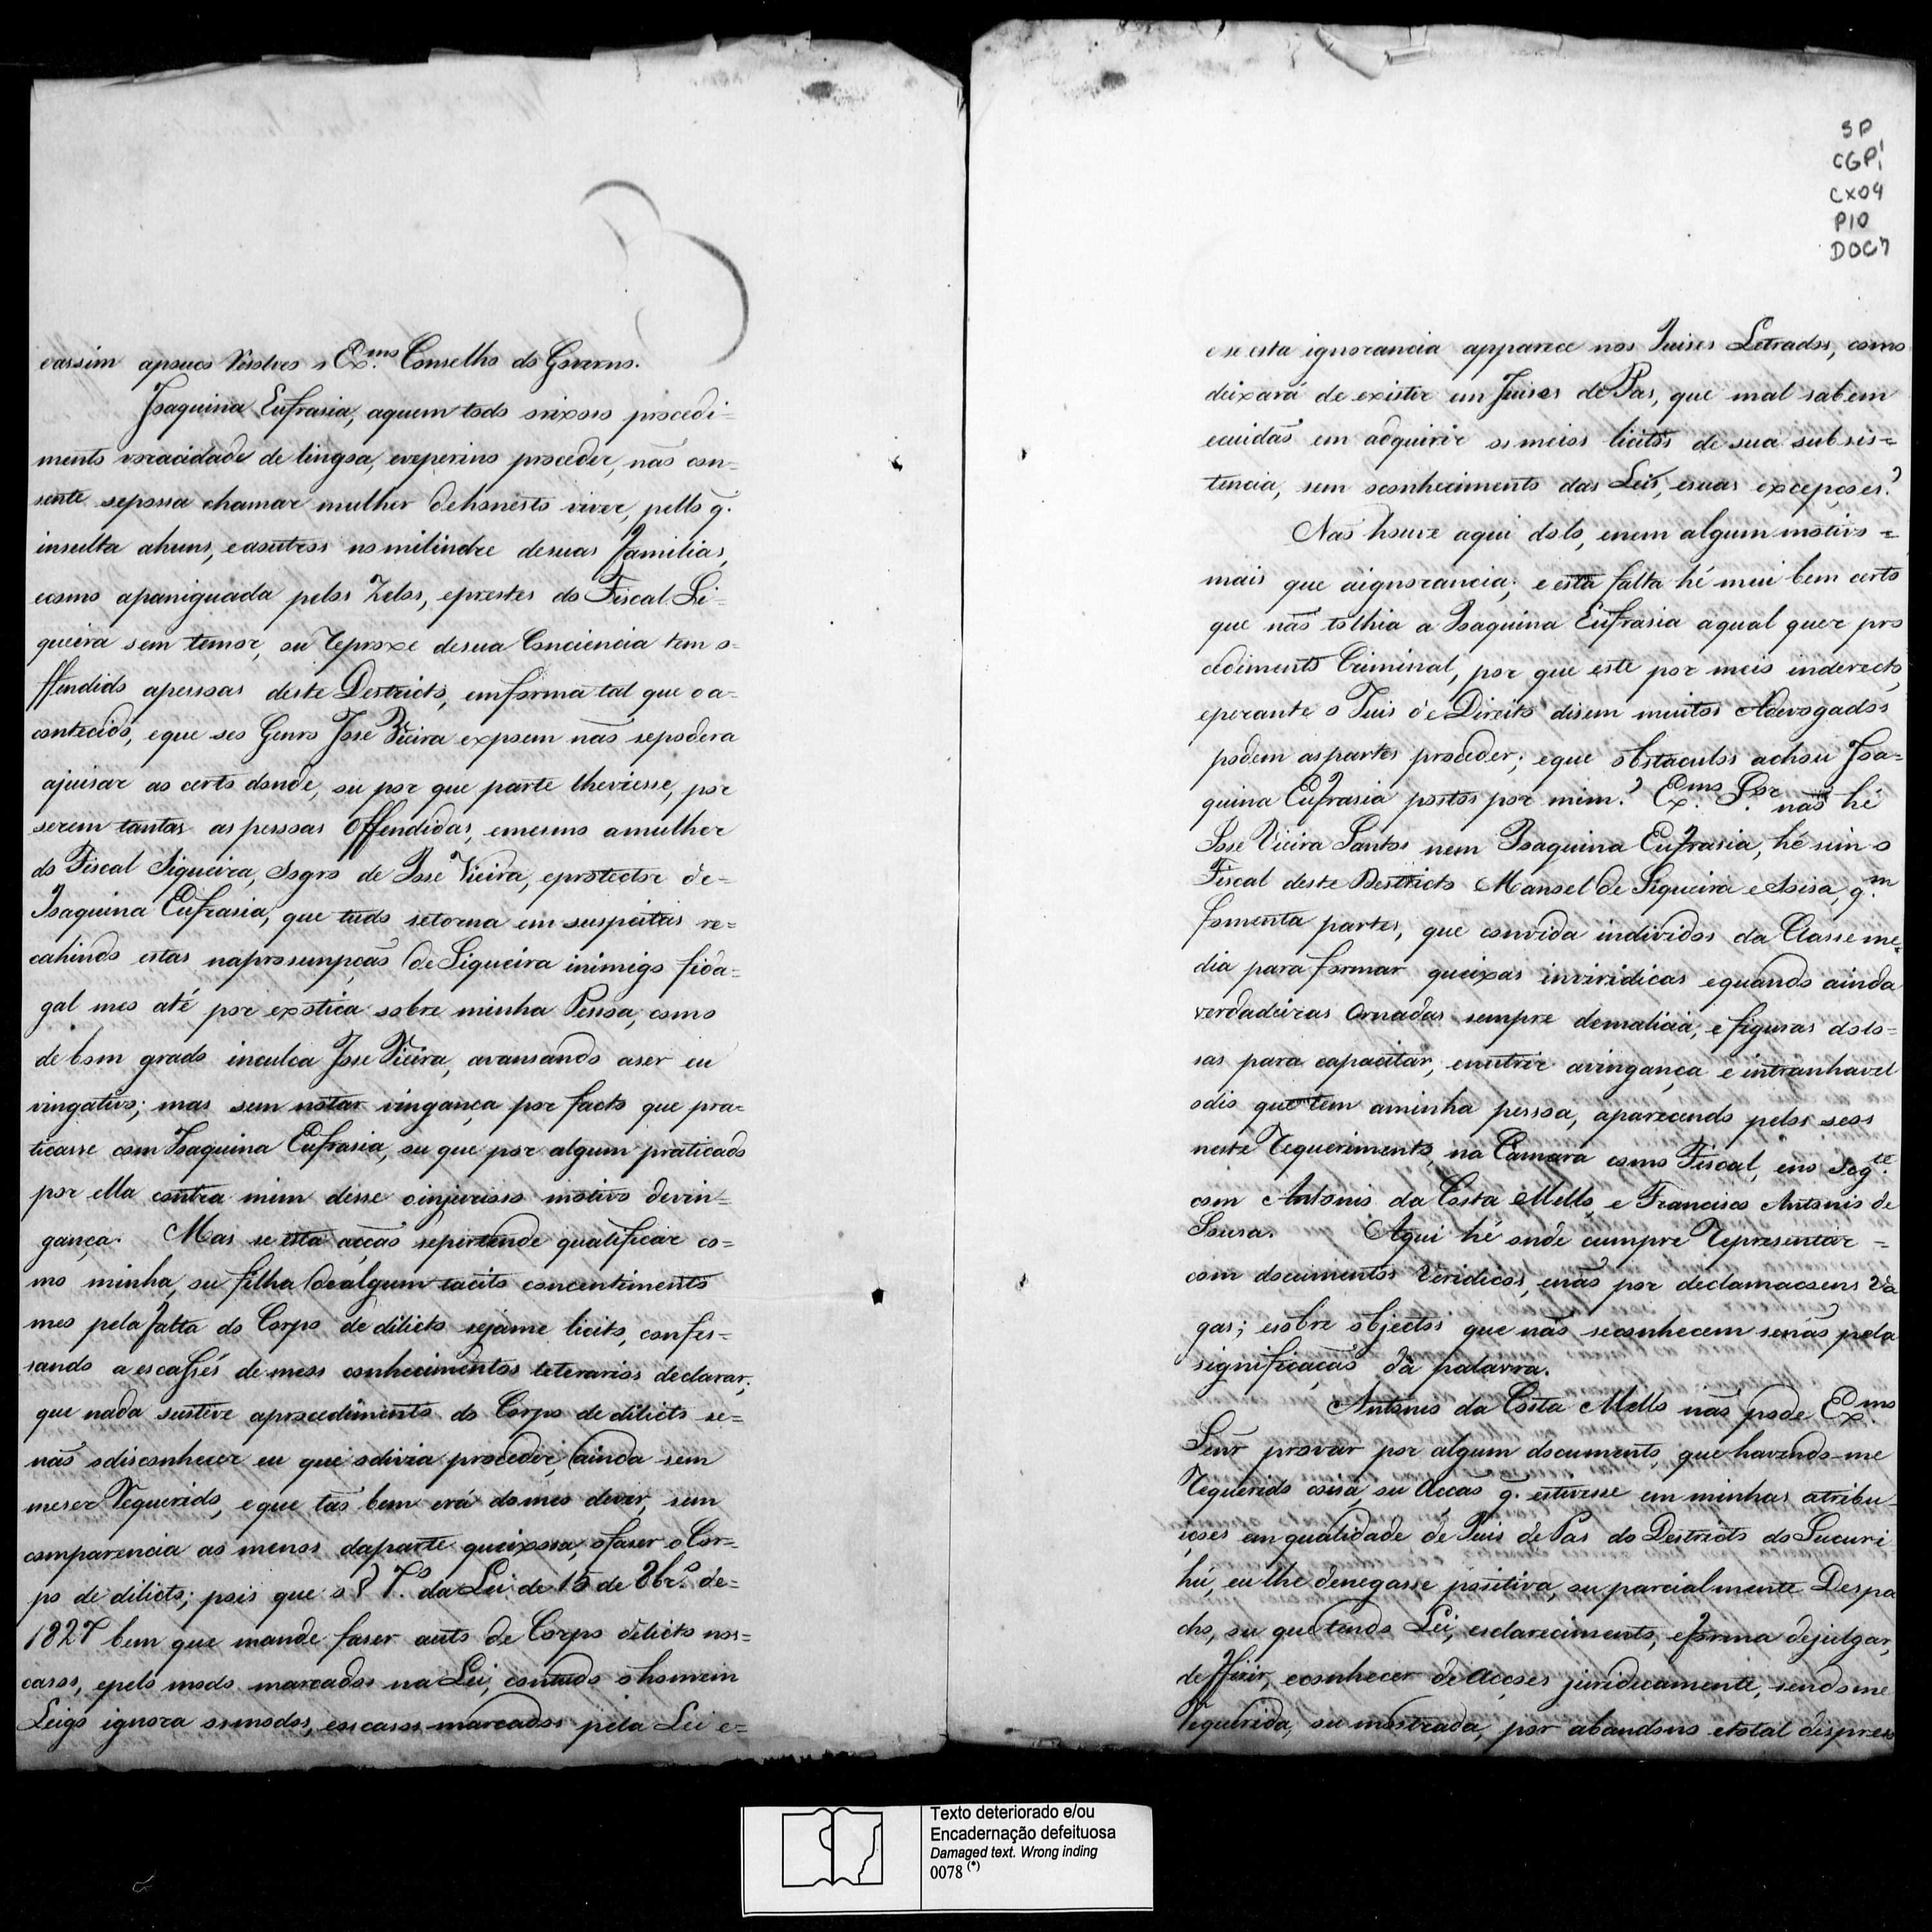 eassim apouco Resolveo o Ex.mo Conselho do Governo.
Joaquina Eufrasia, aquem todo orixoso procedi-
mento voracidade de lingoa, eveperino proceder, não con-
sente sepossa chamar mulher dehonesto viver, pello q.
insulta ahuns, eaoutros nomilindre desuas familias,
ecomo apaniguada pelos Zelos, eprestes do Fiscal Si-
queira sem temor, ou Reproxe desua Conciencia tem o-
ffendido apessoas deste Destricto, emforma tal que o a-
contecido, eque seo Genro Jose Vieira expoem não sepodera
ajuisar ao certo donde, ou por que parte lheviesse, por
serem tantas as pessoas Offendidas, emesmo amulher
do Fiscal Siqueira, Sogro de Jose Vieira, eprotector de-
Joaquina Eufrasia, que tudo setorna em suspeitas re-
cahindo estas naprosumpcão de Siqueira inimigo fida-
gal meo até por exotica sobre minha Pessoa, como
de bom grado inculca Jose Vieira, avansando aser eu
vingativo; mas sem notar vingança por facto que pra-
ticasse com Joaquina Eufrasia, ou que por algum praticado
por ella contra mim desse oinjurioso motivo devin-
gança. Mas se esta acção sepertende qualificar co-
mo minha, ou filha dealgum tacito concentimento
meo pela falta do Corpo de dilicto sejame licito, confes-
sando a escassés de meos conhecimentos leterarios declarar;
que nada susteve aprocedimento do Corpo de dilicto se-
não odisconhecer eu que odivia proceder, ainda sem
meser Requerido, eque tão bem erá domeo dever, sem
comparencia ao menos daparte queixosa, ofaser o Cor-
po de dilicto; pois que o § 7.º da Lei de 15 de 8br.º de-
1827 bem que mande faser auto de Corpo dilicto nos-
casos, epelo modo marcados na Lei, contudo o homem
Leigo ignora osmodos, eoscasos marcados pela Lei e-
SP
CGP1
CX04
P10
DOC7
e se esta ignorancia apparece nos Juises Letrados, como
deixará de existir em Juises de Pas, que mal sabem
ecuidão em adquirir os meios licitos de sua subsis-
tencia, sem oconhecimento das Leis, esuas excepçoes?
Não houve aqui dolo, enem algum motivo =
mais que aignorancia; e esta falta hé mui bem certo
que não tolhia a Joaquina Eufrasia aqual quer pro
cedimento Criminal, por que este por meio inderecto,
eperante o Juis de Direito disem muitos Adevogados
podem aspartes proceder; eque obstaculos achou Joa-
quina Eufrasia postos por mim? Ex.mo S.or não hé
Jose Vieira Santos nem Joaquina Eufrasia, hé sim o
Fiscal deste Destricto Manoel de Siqueira e Asisa, q.m
fomenta partes, que convida individos da Classe me-
dia para formar queixas inviridicas equando ainda
verdadeiras Ornadas sempre demalicia, e figuras dolo-
sas para capacitar, enutrir avingança e intranhavel
odio que tem aminha pessoa, aparecendo pelos seos
neste Requerimento, na Camara como Fiscal, eno Seg.te
com Antonio da Costa Mello, e Francisco Antonio de
Sousa. Aqui hé onde cumpre Representar =
com documentos Veridicos, enão por declamacoens va
gas; esobre objectos que não seconhecem senão pela
significação da palavra.
Antonio da Costa Mello não pode Ex.mo
Senr provar por algum documento, que havendo-me
Requerido cousa, ou Accão q. estivesse em minhas atribu-
içoes em qualidade de Juis de Pas do Destricto do Sucuri
hú, eu lhe denegasse positiva, ou parcialmente Despa
cho, ou que tendo Lei, esclarecimento, eforma dejulgar,
deffirir, econhecer de Accoes juridicamente, sendome
Requerida, ou mostrada, por abandono etotal dispreso
Texto deteriorado e/ou
Encadernação defeituosa
Damaged text. Wrong inding
0078 (*)